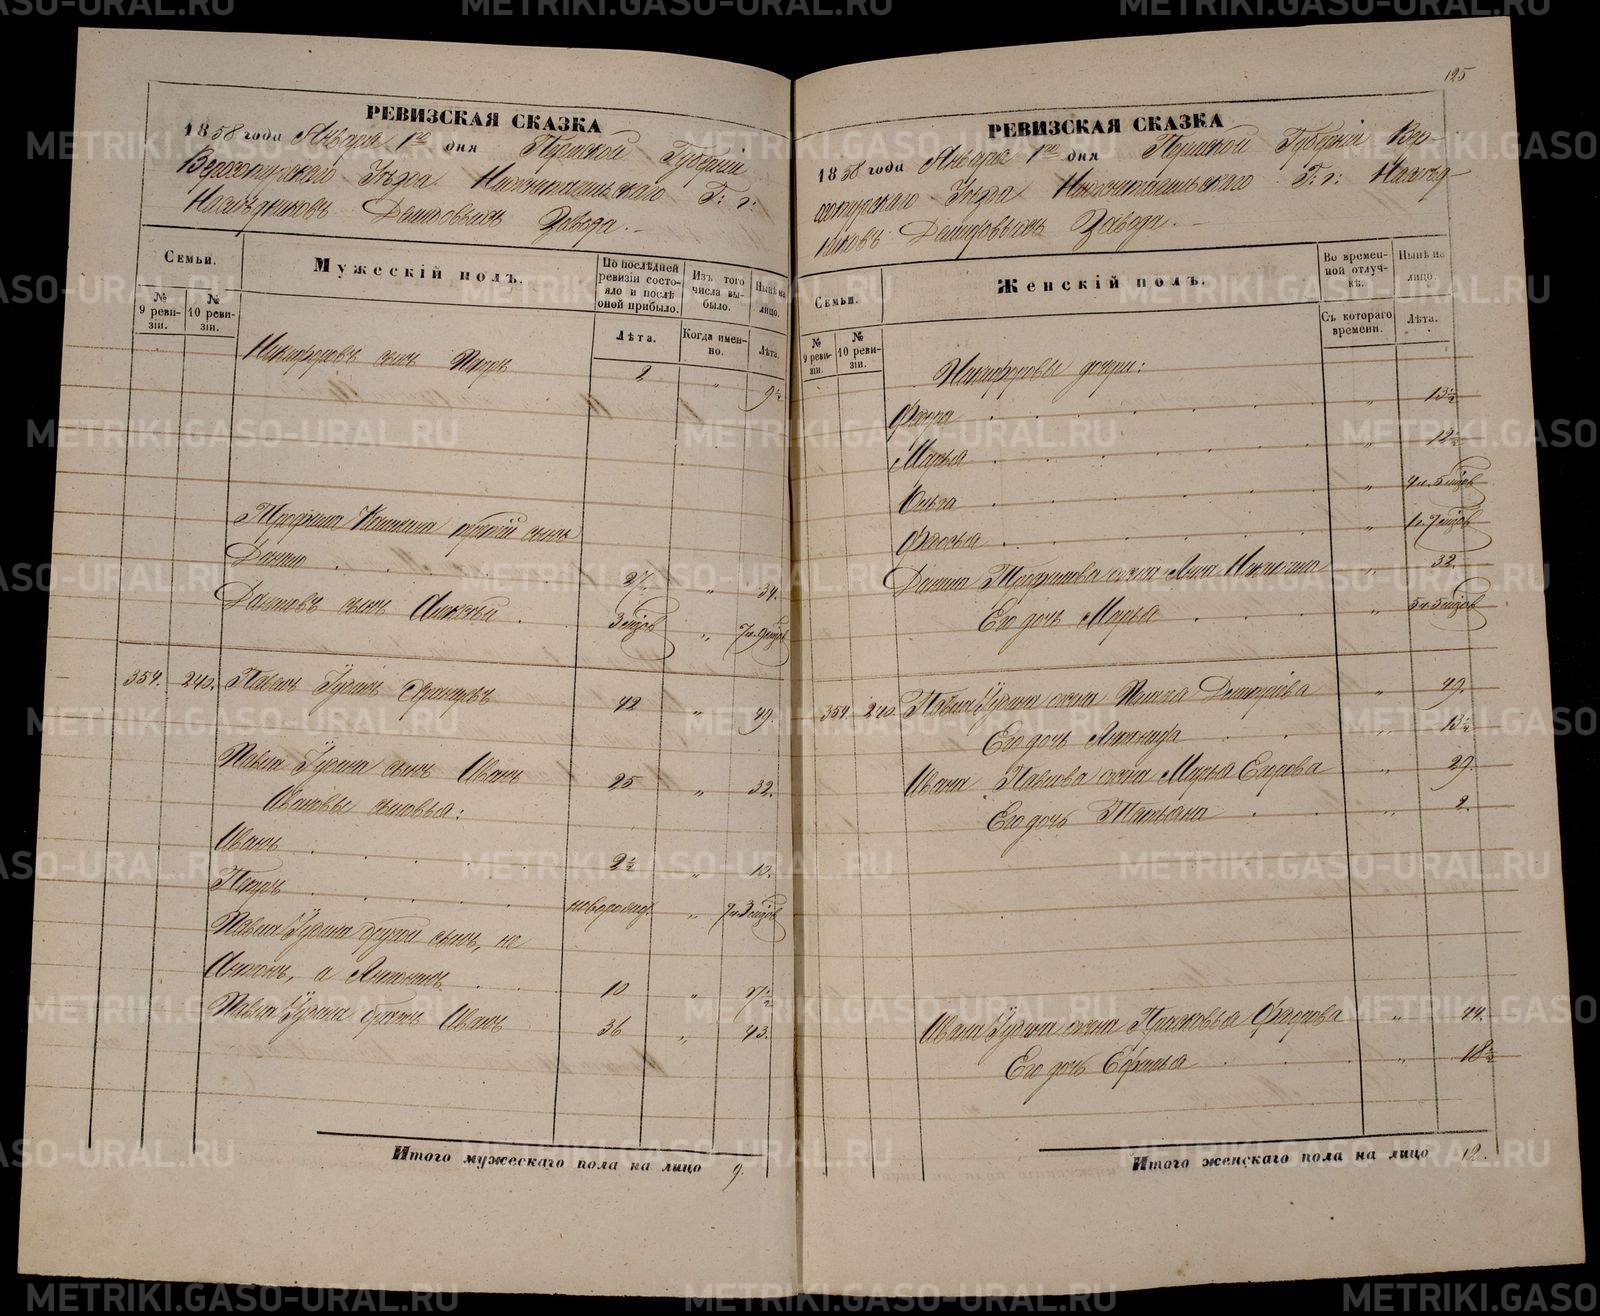 125
РЕВИЗСКАЯ СКАЗКА
1858 года Января 1го дня Пермской Губерніи
Верхотурскаго Уѣзда Нижнетагильскаго Г: г:
Наслѣдниковъ Демидовыхъ Завода.
Семьи.
№ 9 ревизіи.
№ 10 ревизіи.
Мужескій полъ.
По послѣдней ревизіи состояло и послѣ оной прибыло.
Изъ того числа выбыло.
Нынѣ на лицо.
Лѣта.
Когда именно.
Лѣта.
Никифоровъ сынъ Петръ 2 " 9½
Трофима другой сынъ
Данило 27. " 34.
Даниловъ сынъ Алексѣй 3 мцов " 7 л. 9 мцов
354. 240. Павелъ Гурьинъ 42 " 49.
Павла Гурьина сынъ Иванъ 25 " 32.
Ивановы сыновья:
Иванъ 2½ " 10.
Петръ новорожд. " 7 л. 3 мцов
Павла Гурьина другой сынъ, не
Антонъ, а 10 " 17½
Павла Гурьина братъ Иванъ 36 " 43.
Итого мужескаго пола на лицо 9.
РЕВИЗСКАЯ СКАЗКА
1858 года Января 1го дня Пермской Губерніи Вер-
хотурскаго Уѣзда Нижнетагильскаго Г: г: Наслѣд-
никовъ Демидовыхъ Завода.
Семьи.
№ 9 ревизіи.
№ 10 ревизіи.
Женскій полъ.
Во временной отлучкѣ.
Нынѣ на лицо.
Съ котораго времени.
Лѣта.
Никифоровы дочери:
Федора " 13½
Марья " 12½
Ольга " 4 л. 5 мцов
Федосья " 1 л. 7 мцов
Данила Трофимова жена Анна " 32.
Его дочь Марья " 5 л. 5 мцов
354 240 Павла Гурьина жена Дмитріева " 49.
Его дочь " 13½
Ивана Павлова жена Марья Егорова " 29.
Его дочь Татьяна " 2.
Ивана Гурьина жена Прасковья Федорова " 44.
Его дочь Ефимья " 18½
Итого женскаго пола на лицо 12.
METRIKI.GASO-URAL.RU